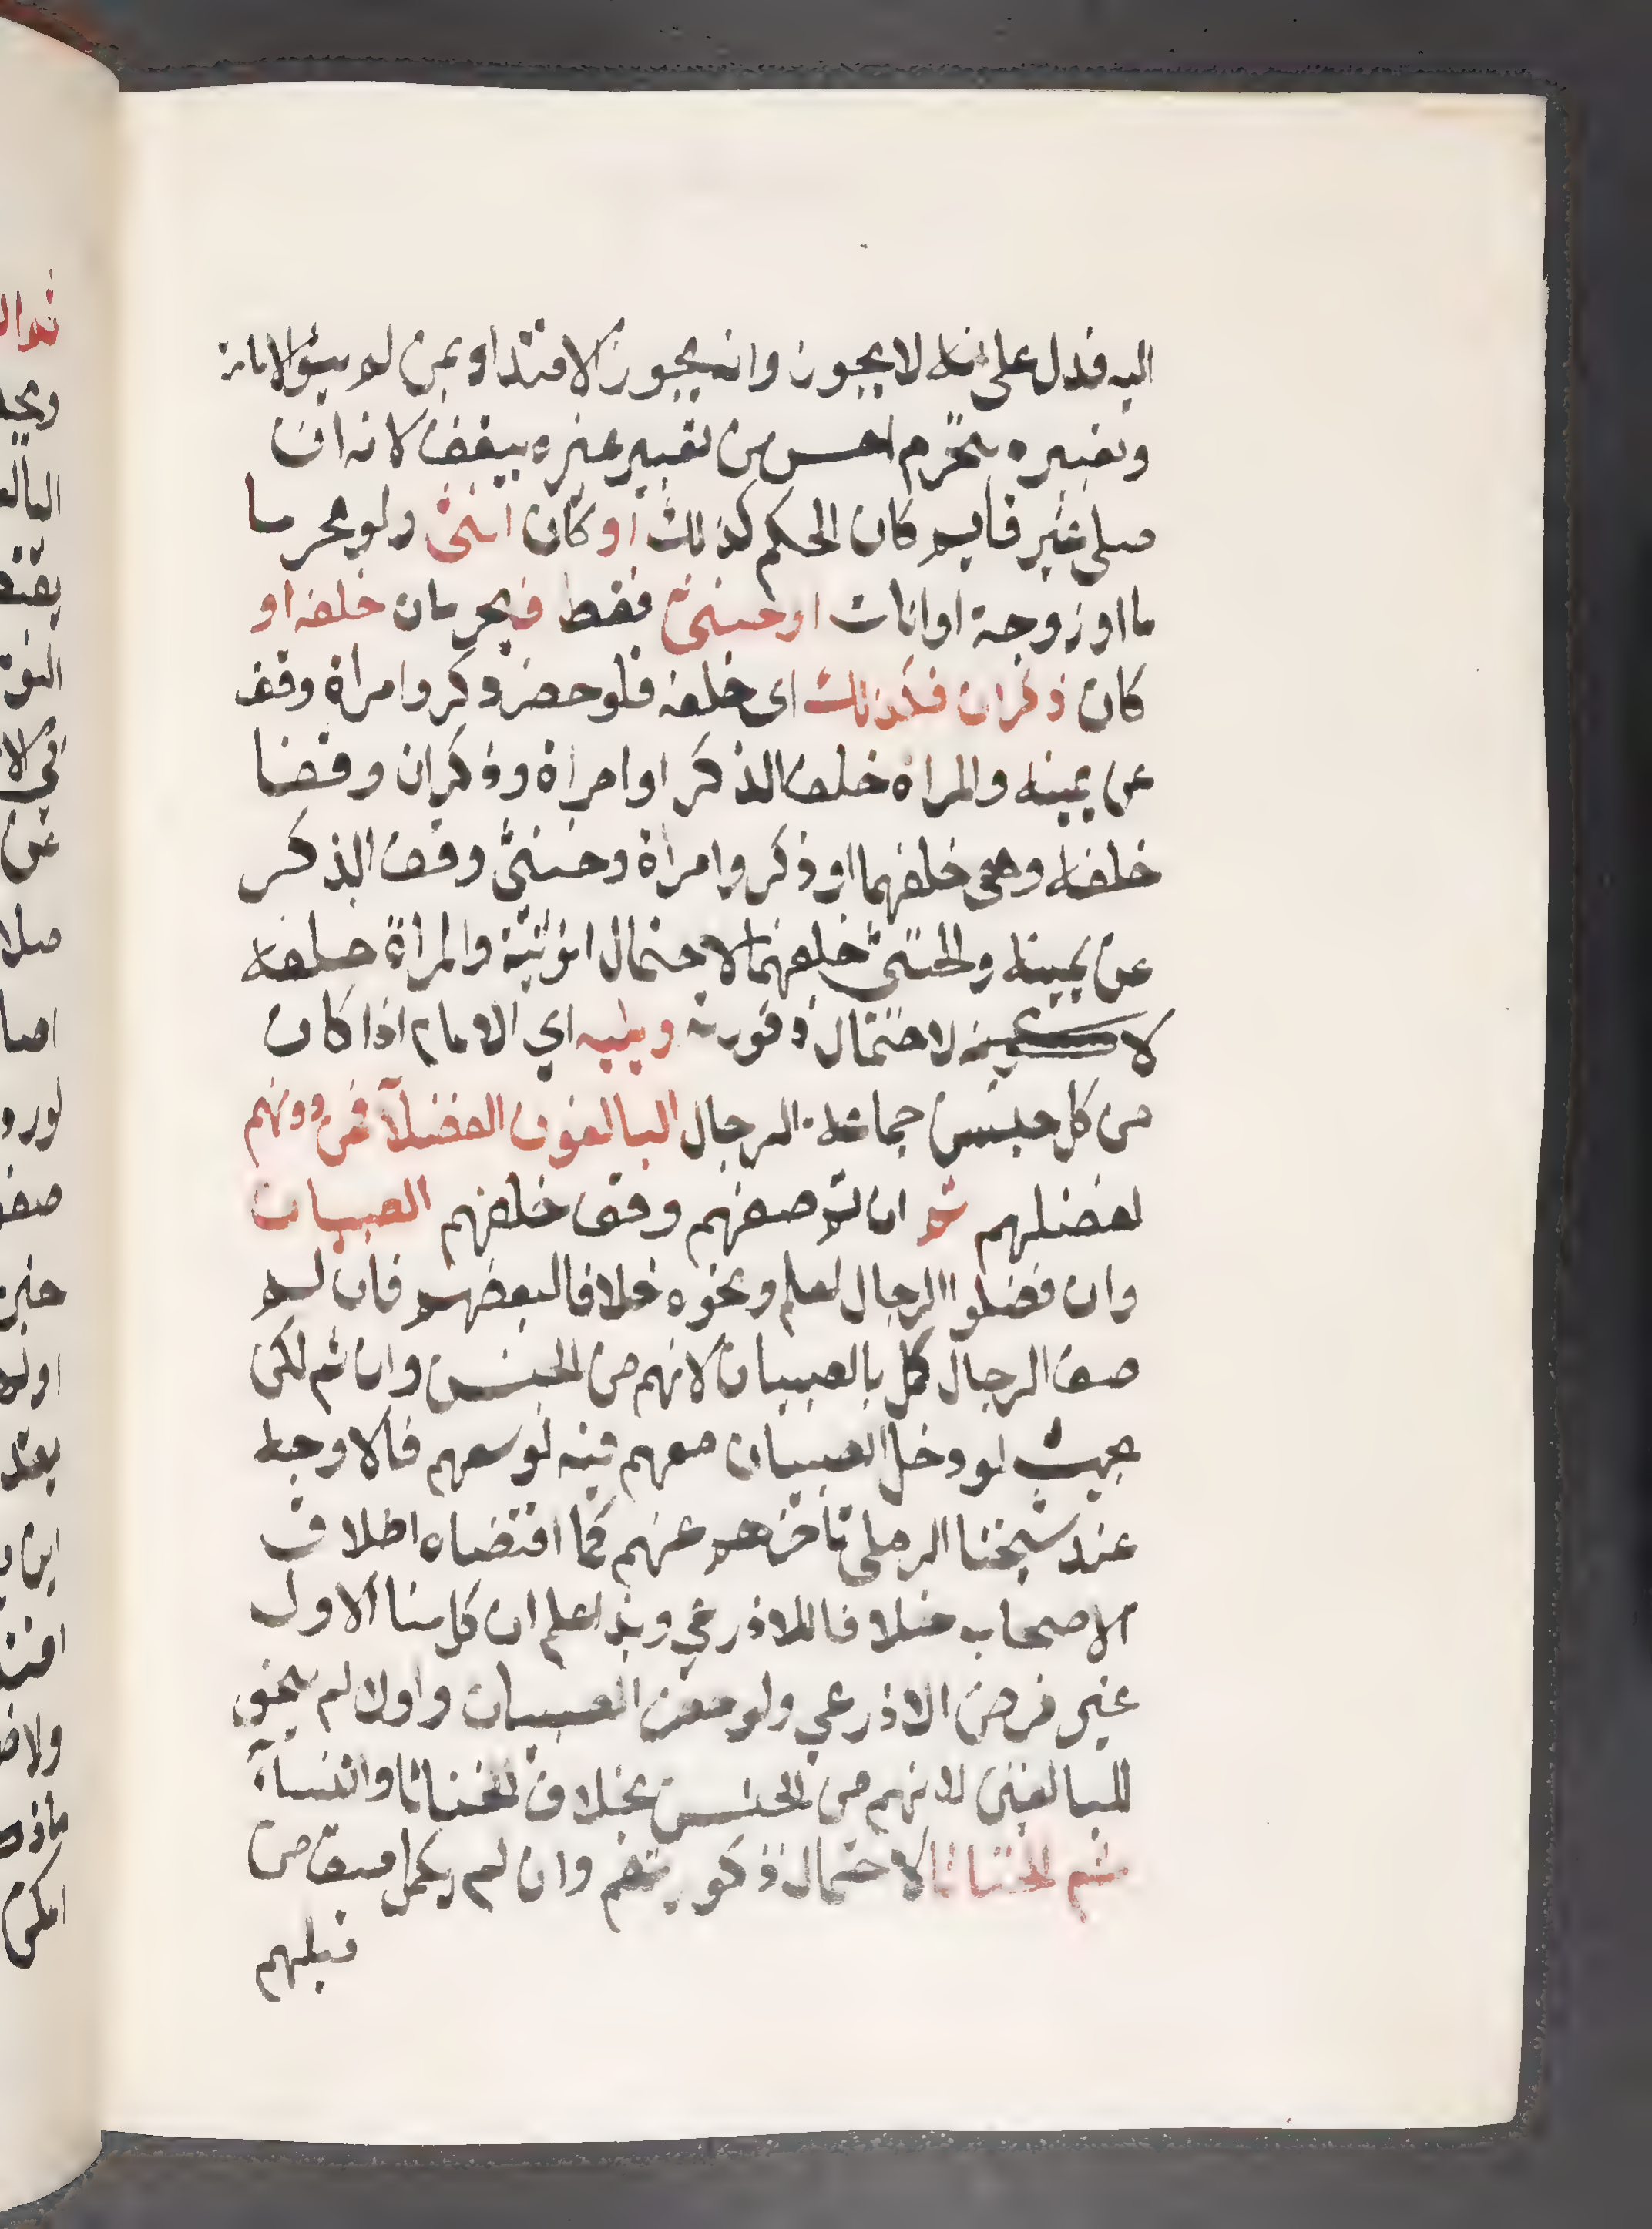 اليه فدل على انه لا يجوز وانه يجوز الاقتداء بمن لم ينو الامامة
وتعبيره بتحرم احسن من تعبير غيره بيقف لانه ان
صلى غير قايم كان الحكم كذلك او كان انثى ولو محرسا
ما او زوجة او اناث او خنثى فقط فيحرمان خلفه او
كان ذكران فكذلك اى خلفه فلو حضر ذكر وامراة وقف
عن يمينه والمراة خلف الذكر او امراة وذكران وقفا
خلفه وهي خلفهما او ذكر وامراة وخنثى وقف الذكر
عن يمينه والخنثى خلفهما لاحتمال انوثته والمراة خلفه
لاحتمال ذكورته ويليه اي الامام اذا كان
من كل جنس جماعة الرجال البالغون الفضلآ فمن دونهم
لفضلهم ثم ان تم صفهم وقف خلفهم الصبيان
وان فضلوا الرجال لعلم ونحوه خلافا لبعضهم فان لم
صف الرجال كمل بالصبيان لانهم من الجنس وان تم لكن
بحيث لو دخل الصبيان معهم فيه لوسعهم فالاوجه
عند شيخنا الرملي تاخرهم عنهم كما اقتضاه اطلاق
الاصحاب خلافا للاذرعي وبذا علم ان كلامنا الاول
غير فرض الاذرعي ولو حضر الصبيان واولا لم ينحوا
للبالغين لانهم من الجنس بخلاف الخناثا والنسآء
ثم الخناثا لاحتمال ذكورتهم وان لم يكمل صف من
قبلهم